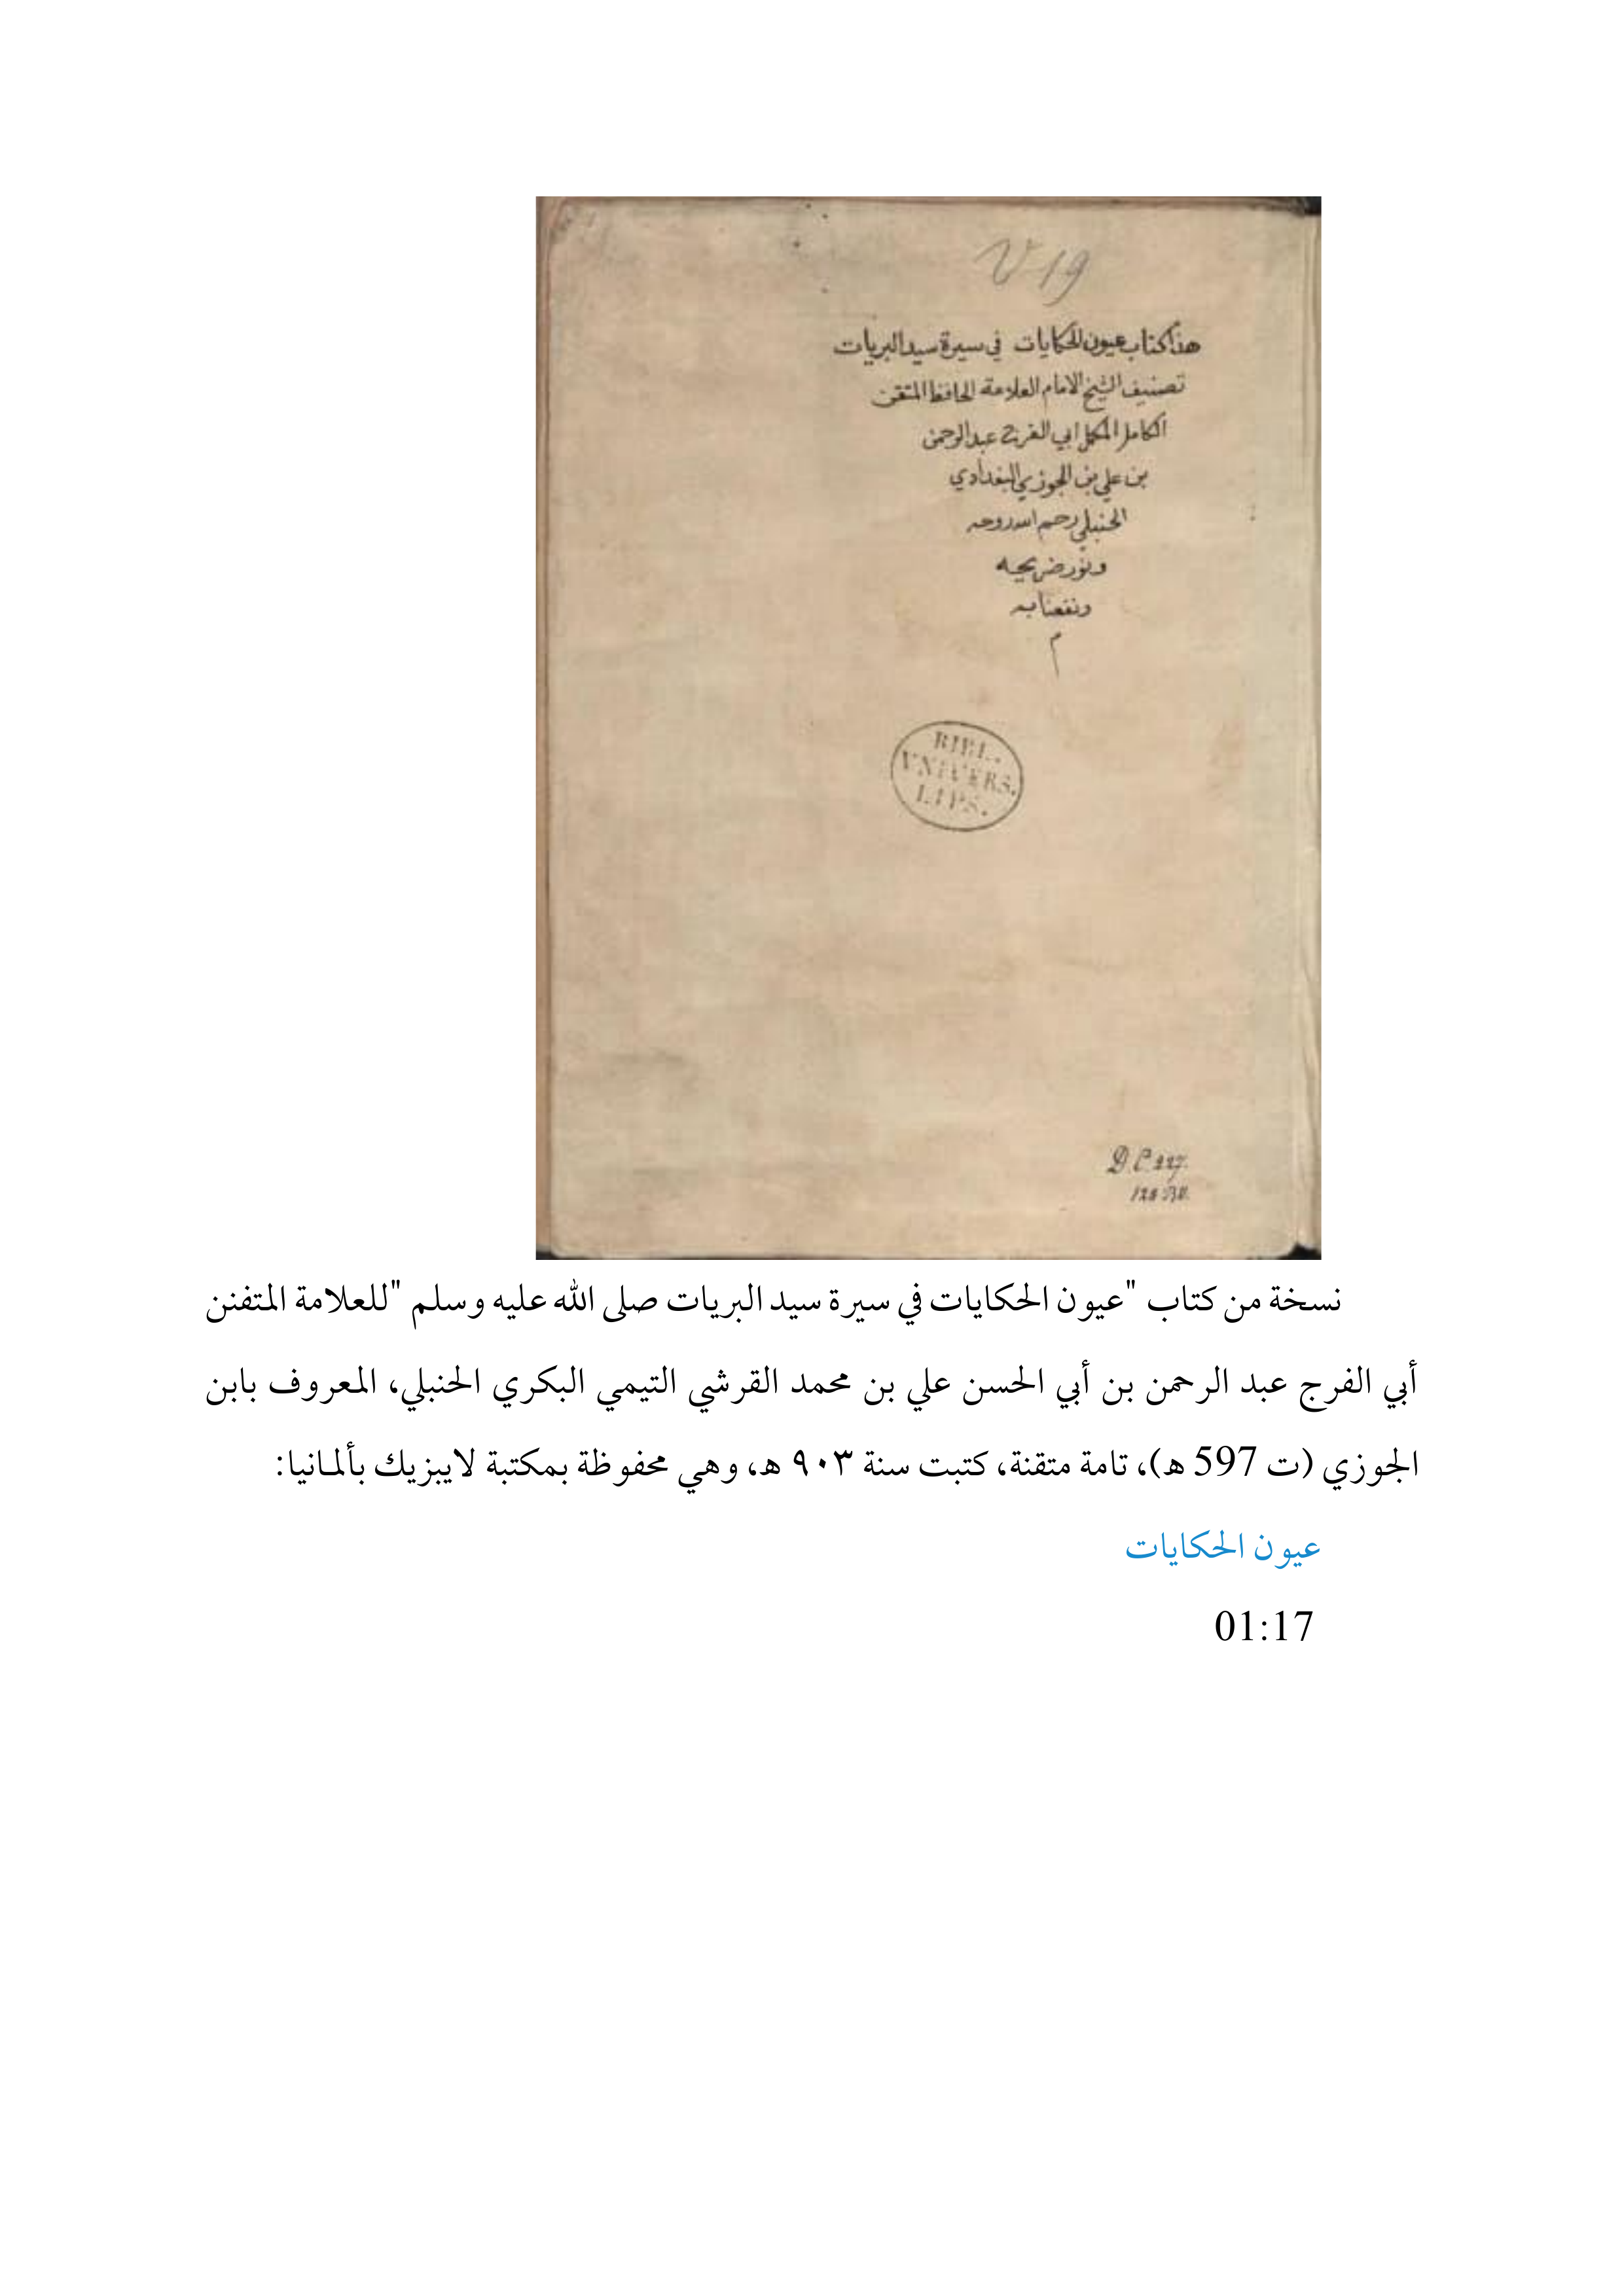 V 19
هذا كتاب عيون الحكايات في سيرة سيد البريات
تصنيف الشيخ الامام العلامة الحافظ المتقن
الكامل المكمل ابي الفرج عبد الرحمن
بن علي بن الجوزي البغدادي
الحنبلي رحم الله روحه
ونور ضريحه
ونفعنا به
م
BIBL.
VNIVERS.
LIPS.
D.C. 227.
نسخة من كتاب "عيون الحكايات في سيرة سيد البريات صلى الله عليه وسلم "للعلامة المتفنن
أبي الفرج عبد الرحمن بن أبي الحسن علي بن محمد القرشي التيمي البكري الحنبلي، المعروف بابن
الجوزي (ت 597 ه)، تامة متقنة، كتبت سنة ٩٠٣ ه، وهي محفوظة بمكتبة لايبزيك بألمانيا:
عيون الحكايات
01:17